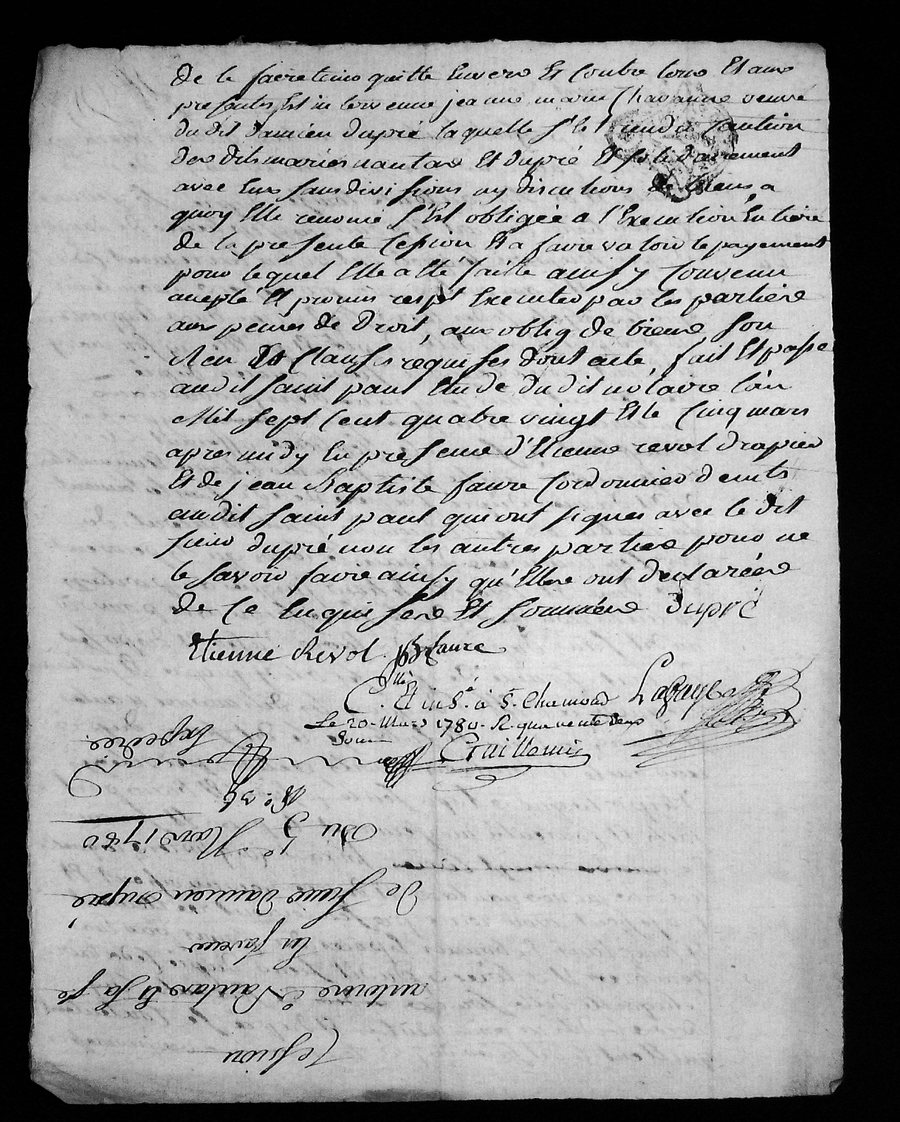 de le faire tenir quitte Envers Et Contre tous Et aux
presentes Est intervenue jeanne marie Chavanne veuve
du dit damien dupré laquelle s'Est rendue Caution
des dits mariés nantas Et dupré Et solidairement
avec Eux sans division ny discutions de biens a
quoy Elle renonce s'Est obligée a l'Execution Entiere
de la presente Cession Et a faire valoir le payement
pour lequel Elle a été faitte ainsy Convenu
accepté Et promis respt Executer par les parties
aux peines de Droit, aux oblig de biens Son
Ren Et Clauses requises dont acte, fait Et passé
audit saint paul Etude dudit notaire L'an
Mil sept Cent quatre vingt Et le Cinq mars
apres midy En presence d'Etienne revol drapier
Et de jean Baptiste faure Cordonnier deux
audit saint paul qui ont signés avec le dit
sieur dupré non les autres parties pour ne
le savoir faire ainsy qu'Elles ont declarées
de Ce Enquises Et Sommées dupré
Etienne Revol. JB faure
C. Et insé. à St. Chamond
Le 20. Mars 1780. R. quarente deux
Guillemin
Expediée
No. 36
Du 5e Mars 1780
Cession
antoine Nantas Et sa fe
En faveur
de sieur damien dupré